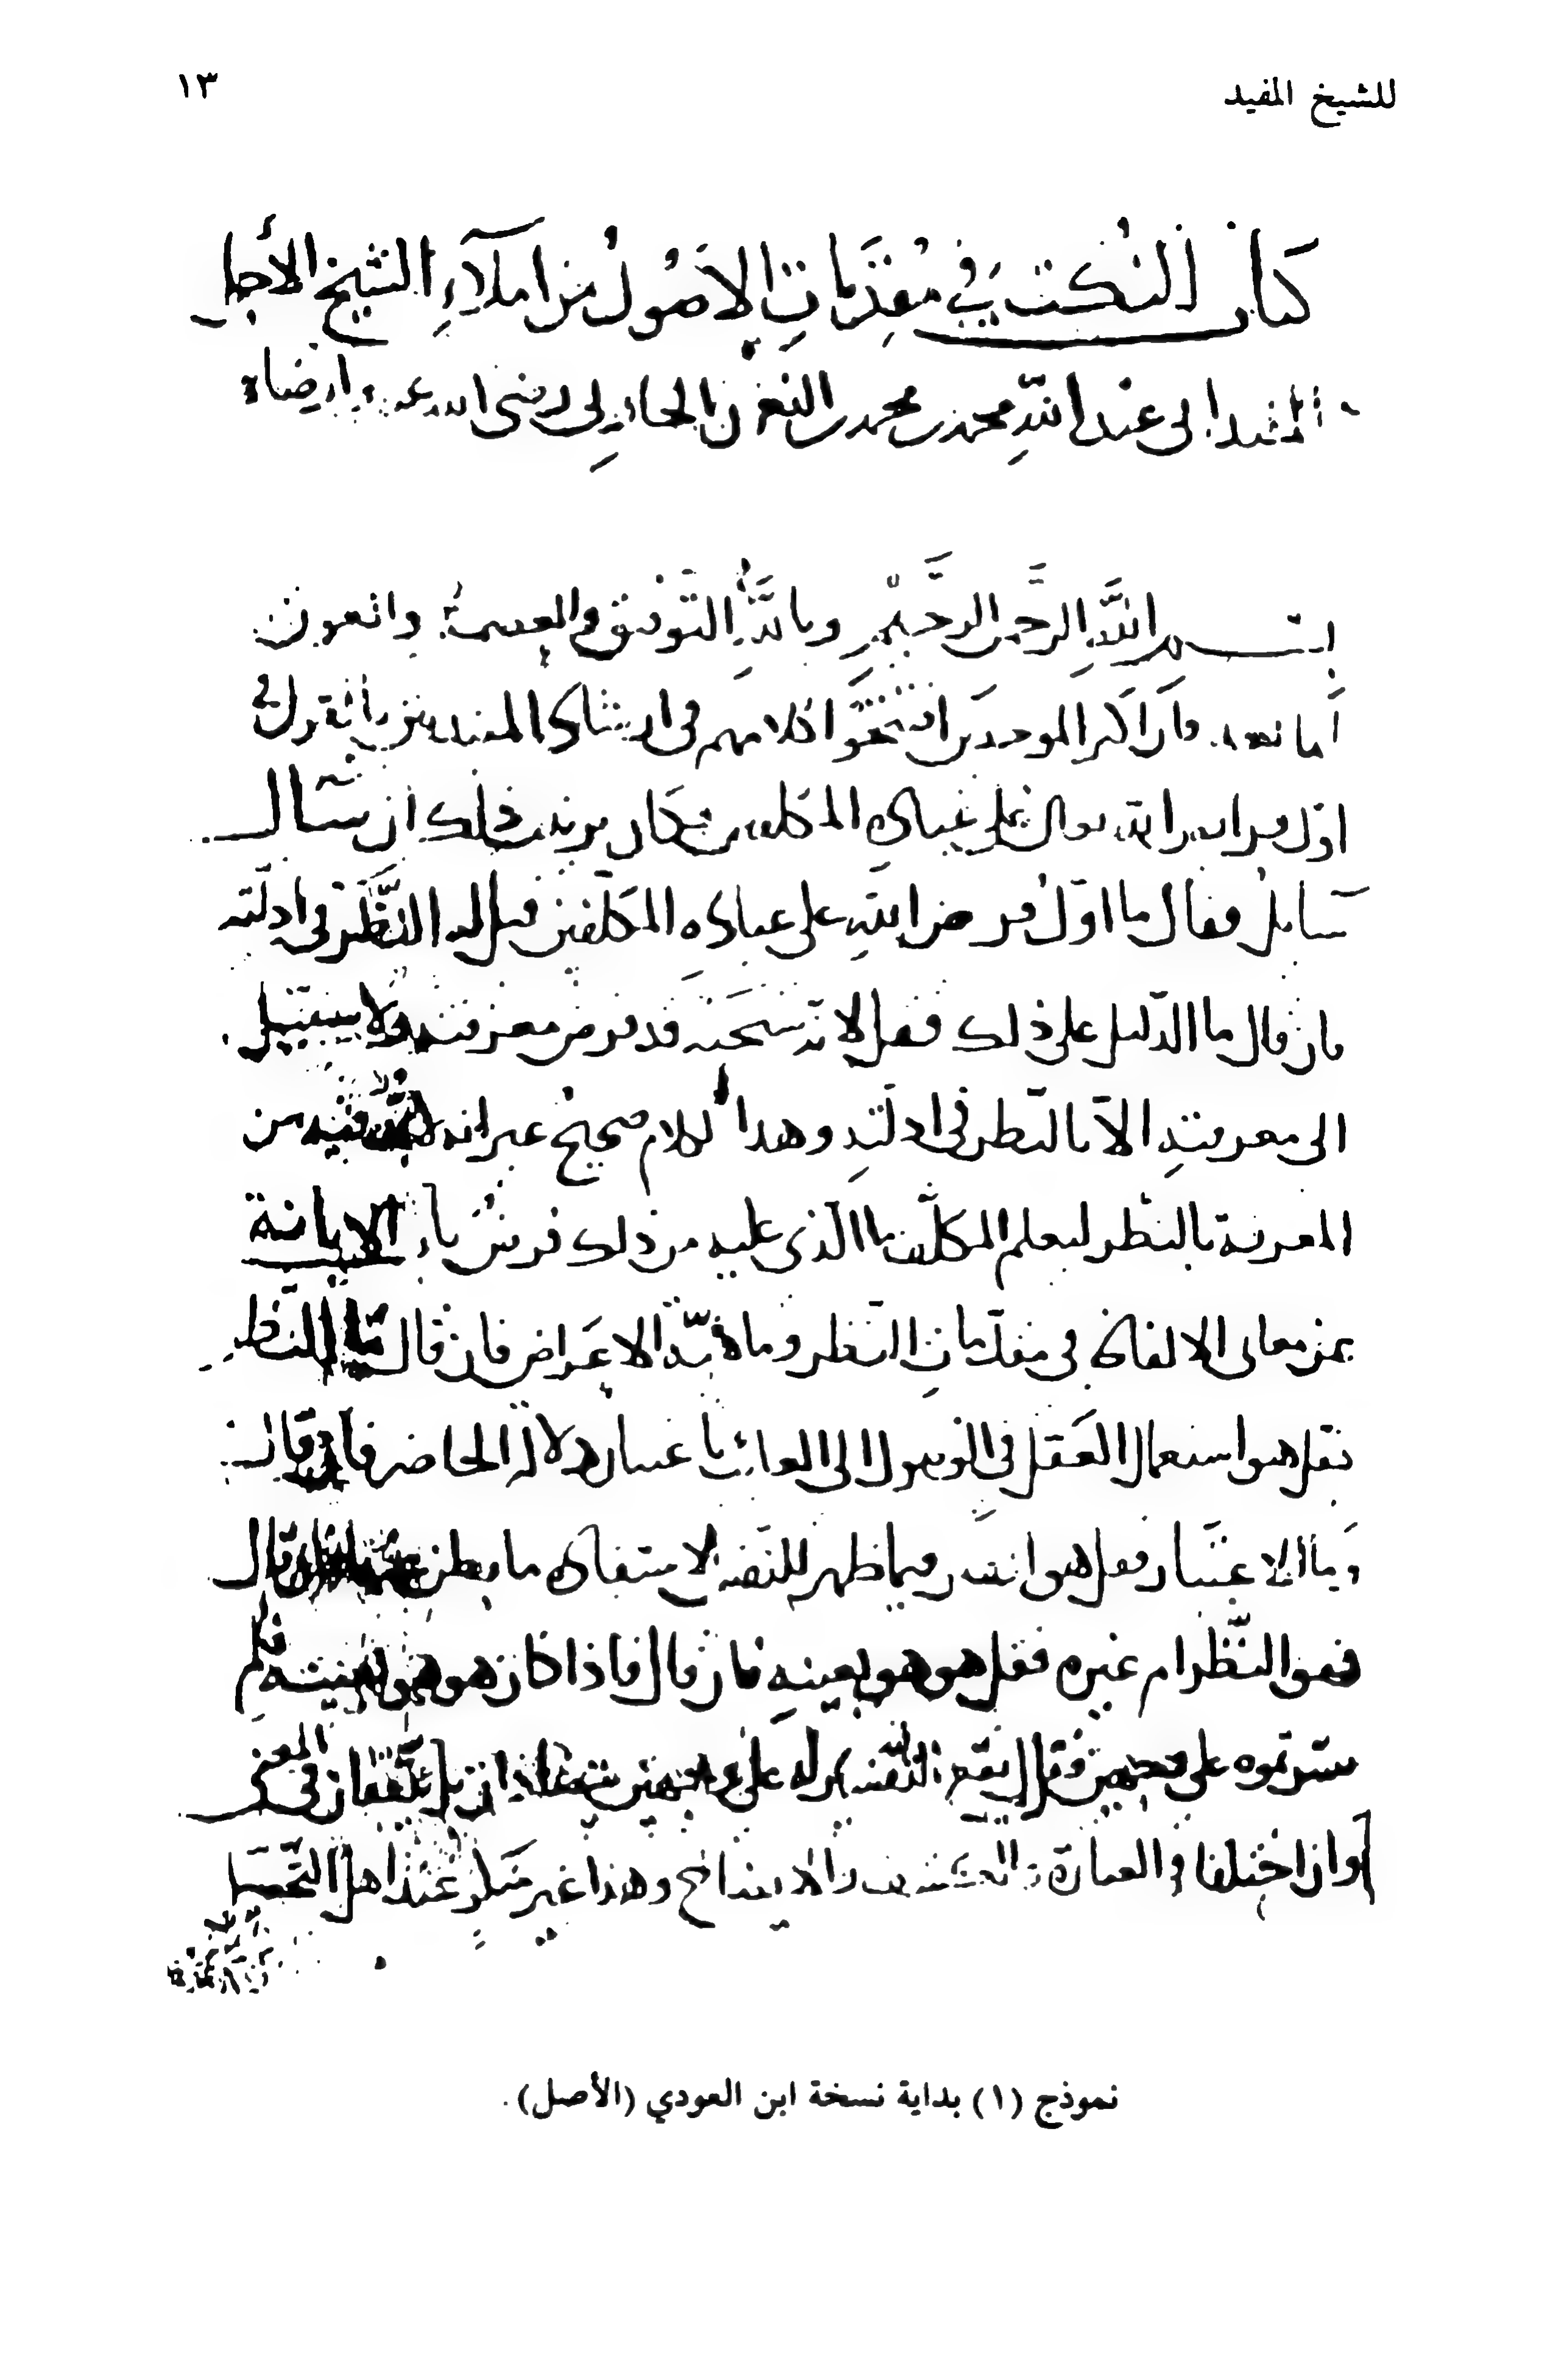 للشيخ المفيد
١٣
كتاب النُكت في مُقَدِّمات الاصُول من املآءِ الشيخ الأجل
المفيد ابى عبد اللّهِ محمد بن محمد بن النعمن الحارثى رضى الله عنه وارضاه
بسم اللَّهِ الرَّحمن الرحيمِ وباللَّهِ التّوفيق والعصمة والعون
أما بعد فان اكثر الموحدين افتتحوا كلامهم فى ارشاد المبتدئين بالقول فى
اوّل فرايض الله تعالى على عباده المكلفين فكان ترتيب ذلك ان سال
سايلٌ فقال ما اوّل فرض اللّهِ على عباده المكلّفين فقل له النَّظر فى ادلّته
فان قال ما الدّليل على ذلك فقل لانّه سبحنه قد فرض معرفته ولا سبيل
الى معرفتهِ الّا بالنّظر فى ادلّتهِ وهذا كلام صحيح غير انه لابُدّ فيه من
المعرفة بالنظر ليعلم المكلَّف ما الّذى عليه من ذلك فرض باء الابانة
عن معانى الالفاظ فى مقدّمات النظر وماهيّة الاعراض فان قال ما النَّظر
فقل هو استعمال العَقل فى الوصول الى الغائب باعتبار دلالة الحاضر فان قال
وما الاعتبار فقل هو النظر فيما ظهر للنفس لاستفادة ما بطن قال
فهو النّظر ام غيره فقل هو هو بعينهِ فان قال فاذا كان هو هو بعينه فلم
على وجهين فقل على وجهين يتفقان فى المعنى
وان اختلفا فى العبارة وهذا غير منكر عند اهل
نموذج (١) بداية نسخة ابن العودي (الأصل).